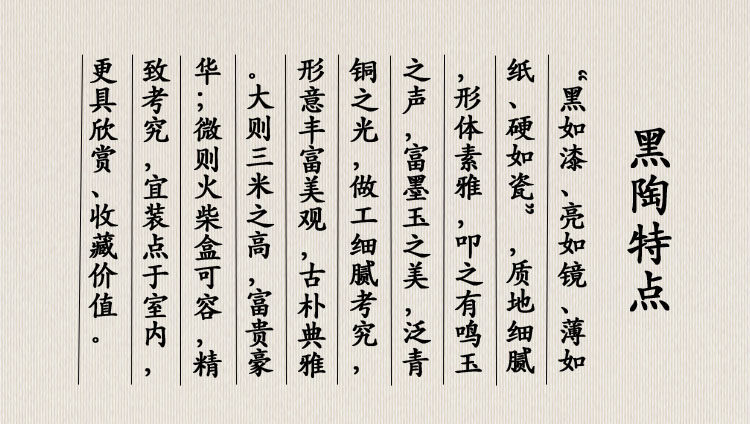 黑陶特点
“黑如漆、亮如镜、薄如
纸、硬如瓷”，质地细腻
，形体素雅，叩之有鸣玉
之声，富墨玉之美，泛青
铜之光，做工细腻考究，
形意丰富美观，古朴典雅
。大则三米之高，富贵豪
华；微则火柴盒可容，精
致考究，宜装点于室内，
更具欣赏、收藏价值。